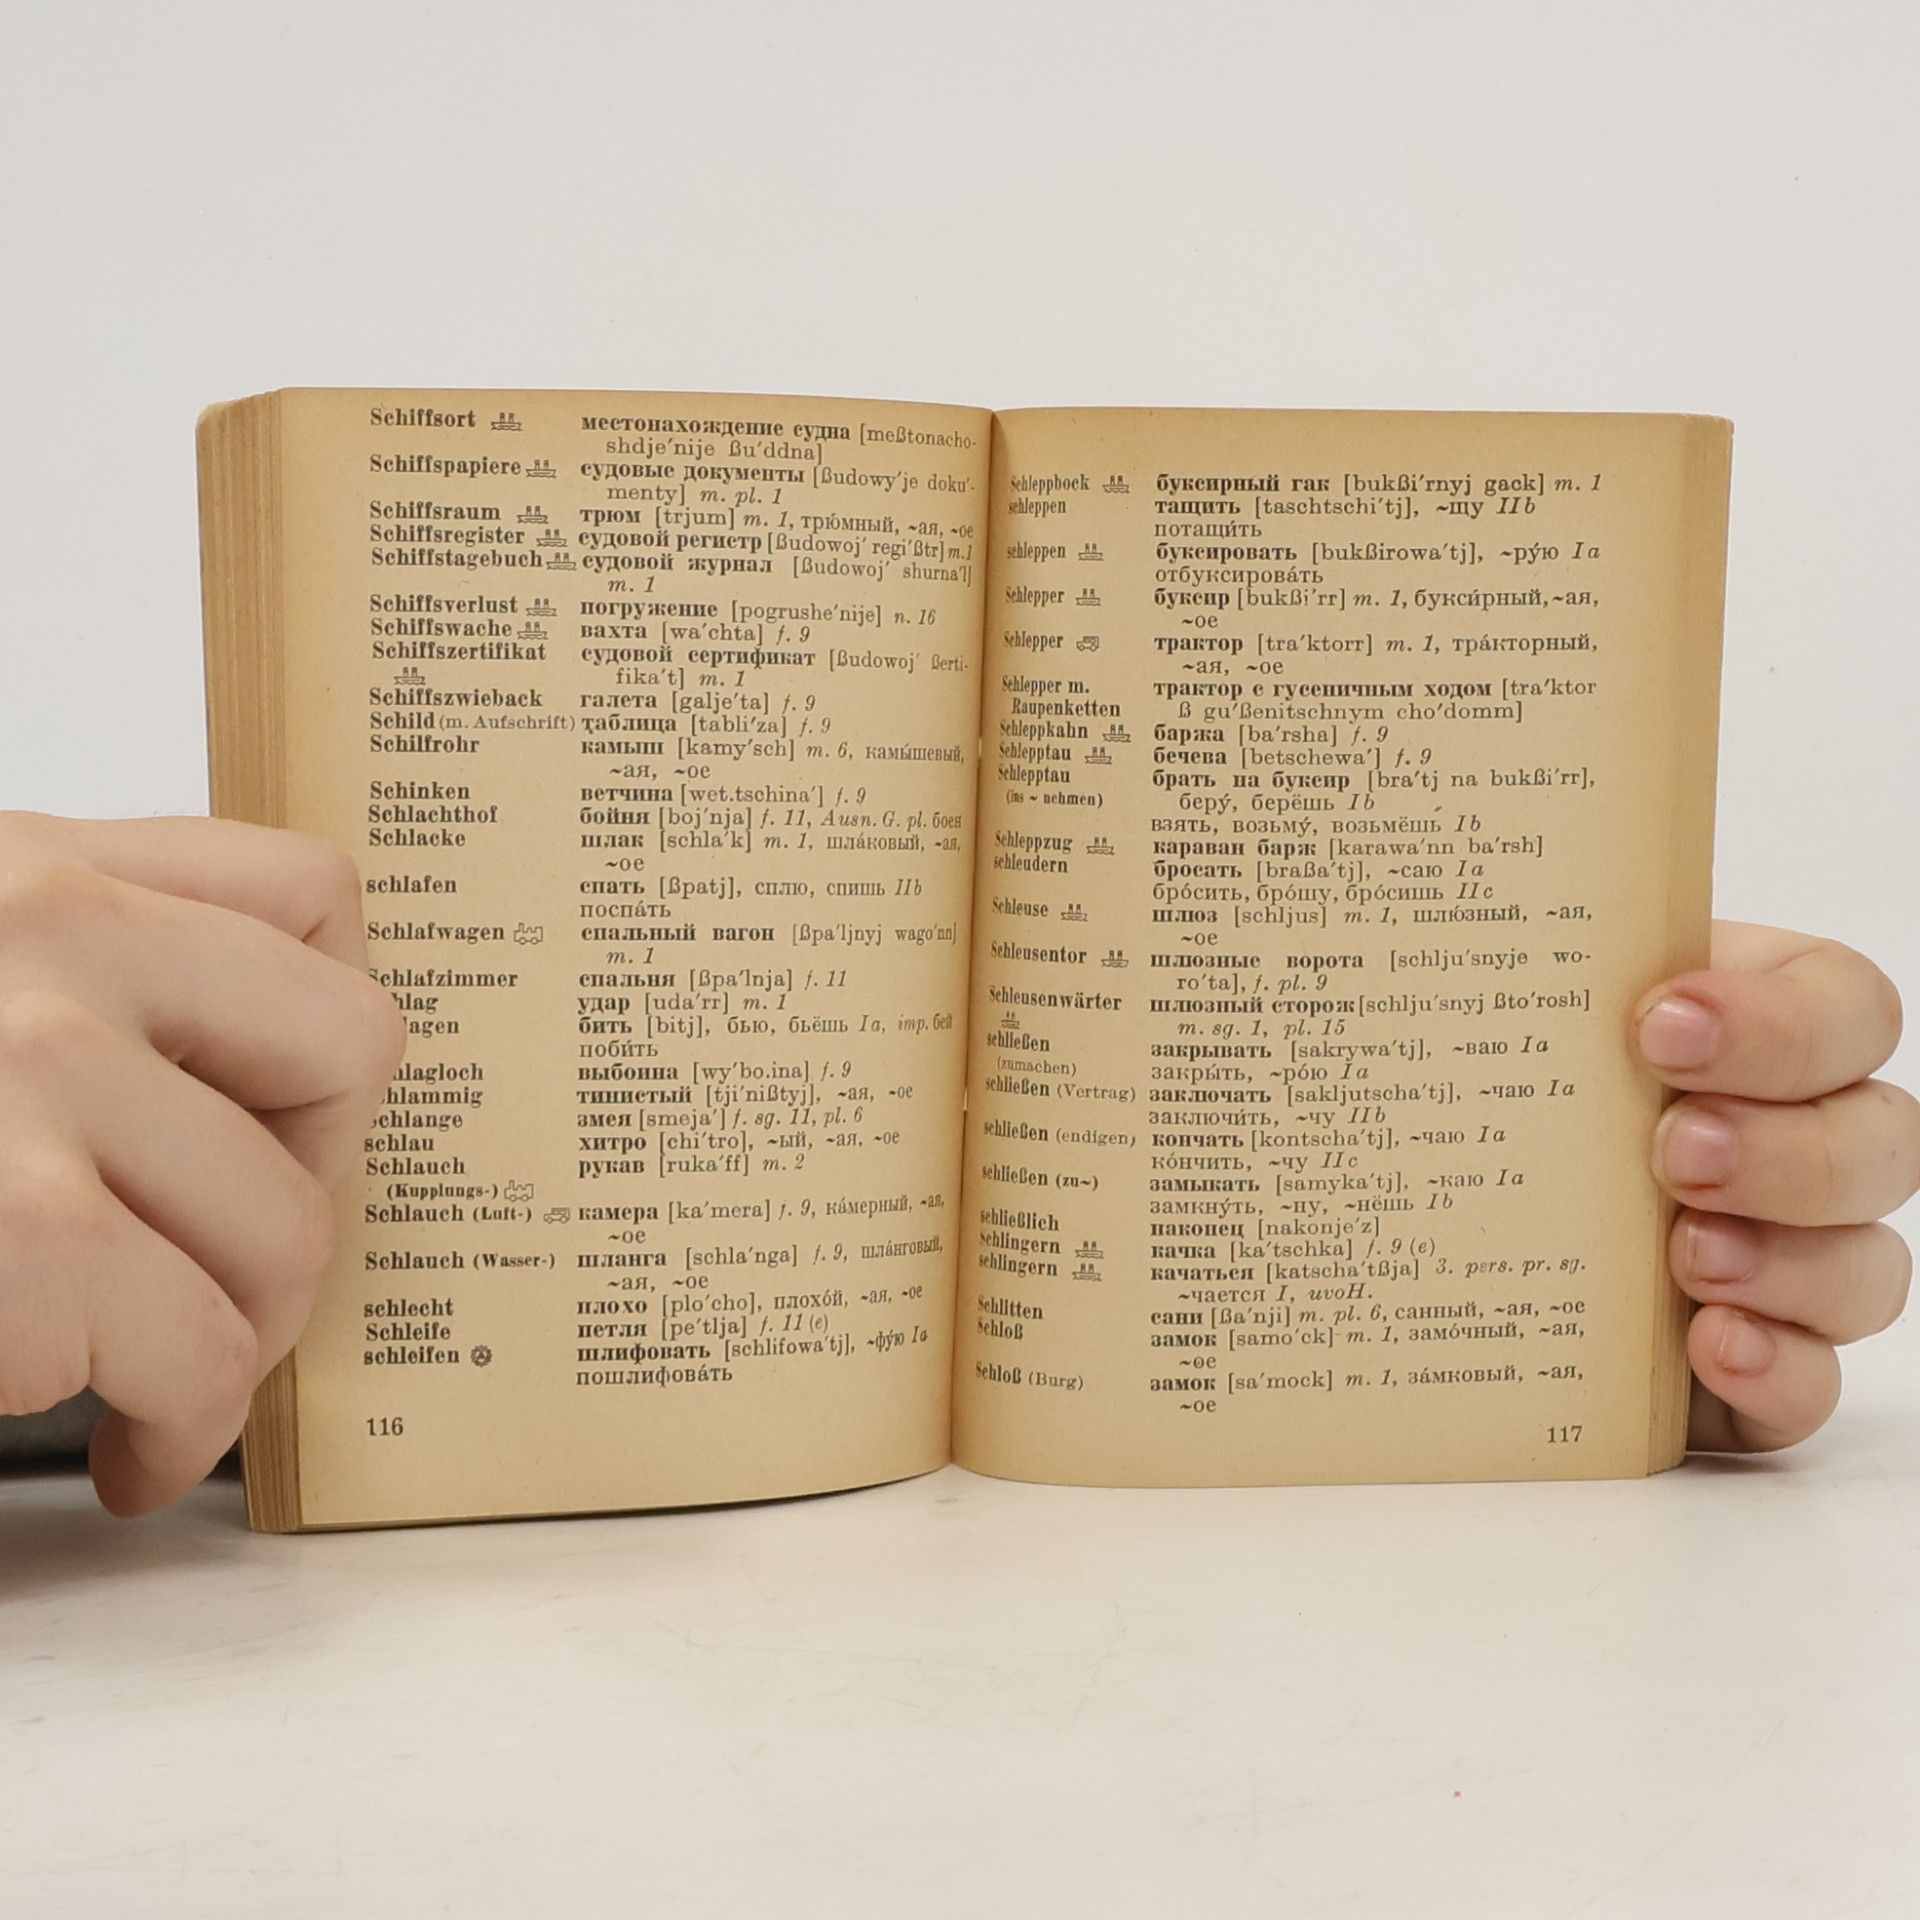 Schiffsort местонахождение судна [meßtonacho-
shdje′nije ßu′ddna]
Schiffspapiere судовые документы [ßudowy′je doku′-
menty] m. pl. 1
Schiffsraum трюм [trjum] m. 1, трю́мный, ~ая, ~ое
Schiffsregister судовой регистр [ßudowoj′ regi′ßtr] m.1
Schiffstagebuch судовой журнал [ßudowoj′ shurna′l]
m. 1
Schiffsverlust погружение [pogrushe′nije] n. 16
Schiffswache вахта [wa′chta] f. 9
Schiffszertifikat судовой сертификат [ßudowoj′ ßerti-
fika′t] m. 1
Schiffszwieback галета [galje′ta] f. 9
Schild (m. Aufschrift) таблица [tabli′za] f. 9
Schilfrohr камыш [kamy′sch] m. 6, камы́шевый,
~ая, ~ое
Schinken ветчина [wet.tschina′] f. 9
Schlachthof бойня [boj′nja] f. 11, Ausn. G. pl. боен
Schlacke шлак [schla′k] m. 1, шла́ковый, ~ая,
~ое
schlafen спать [ßpatj], сплю, спишь IIb
поспа́ть
Schlafwagen спальный вагон [ßpa′ljnyj wago′nn]
m. 1
Schlafzimmer спальня [ßpa′lnja] f. 11
hlag удар [uda′rr] m. 1
lagen бить [bitj], бью, бьёшь Ia, imp. бей
поби́ть
hlagloch выбоина [wy′bo.ina] f. 9
hlammig тинистый [tji′nißtyj], ~ая, ~ое
chlange змея [smeja′] f. sg. 11, pl. 6
schlau хитро [chi′tro], ~ый, ~ая, ~ое
Schlauch рукав [ruka′ff] m. 2
(Kupplungs-)
Schlauch (Luft-) камера [ka′mera] f. 9, ка́мерный, ~ая,
~ое
Schlauch (Wasser-) шланга [schla′nga] f. 9, шла́нговый,
~ая, ~ое
schlecht плохо [plo′cho], плохо́й, ~ая, ~ое
Schleife петля [pe′tlja] f. 11 (e)
schleifen шлифовать [schlifowa′tj], ~фу́ю Ia
пошлифова́ть
116
Schleppbock буксирный гак [bukßi′rnyj gack] m. 1
schleppen тащить [taschtschi′tj], ~щу IIb
потащи́ть
schleppen буксировать [bukßirowa′tj], ~ру́ю Ia
отбуксирова́ть
Schlepper буксир [bukßi′rr] m. 1, букси́рный, ~ая,
~ое
Schlepper трактор [tra′ktorr] m. 1, тра́кторный,
~ая, ~ое
Schlepper m. трактор с гусеничным ходом [tra′ktor
Raupenketten ß gu′ßenitschnym cho′domm]
Schleppkahn баржа [ba′rsha] f. 9
Schlepptau бечева [betschewa′] f. 9
Schlepptau брать на буксир [bra′tj na bukßi′rr],
(ins ~ nehmen) беру́, берёшь Ib
взять, возьму́, возьмёшь Ib
Schleppzug караван барж [karawa′nn ba′rsh]
schleudern бросать [braßa′tj], ~саю Ia
бро́сить, бро́шу, бро́сишь IIc
Schleuse шлюз [schljus] m. 1, шлю́зный, ~ая,
~ое
Schleusentor шлюзные ворота [schlju′snyje wo-
ro′ta], f. pl. 9
Schleusenwärter шлюзный сторож [schlju′snyj ßto′rosh]
m. sg. 1, pl. 15
schließen закрывать [sakrywa′tj], ~ваю Ia
(zumachen) закры́ть, ~ро́ю Ia
schließen (Vertrag) заключать [sakljutscha′tj], ~чаю Ia
заключи́ть, ~чу IIb
schließen (endigen) кончать [kontscha′tj], ~чаю Ia
ко́нчить, ~чу IIc
schließen (zu~) замыкать [samyka′tj], ~каю Ia
замкну́ть, ~ну, ~нёшь Ib
schließlich наконец [nakonje′z]
Schlingern качка [ka′tschka] f. 9 (e)
schlingern качаться [katscha′tßja] 3. pers. pr. sg.
~чается I, uvoH.
Schlitten сани [ßa′nji] m. pl. 6, санный, ~ая, ~ое
Schloß замок [samo′ck] m. 1, замо́чный, ~ая,
~ое
Schloß (Burg) замок [sa′mock] m. 1, за́мковый, ~ая,
~ое
117